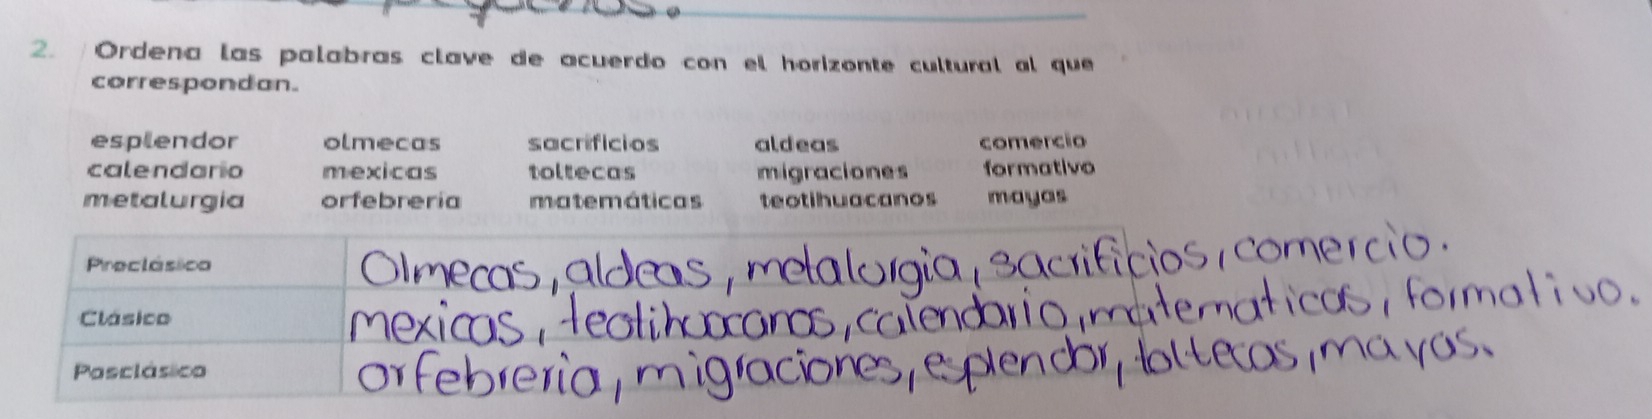 2. Ordena las palabras clave de acuerdo con el horizonte cultural al que
correspondan.
esplendor olmecas sacrificios aldeas comercio
calendario mexicas toltecas migraciones formativo
metalurgia orfebrería matemáticas teotihuacanos mayas
Preclásico Olmecas, aldeas, metalurgia, sacrificios, comercio.
Clásico mexicas, teotihuacanos, calendario, matematicas, formativo.
Posclásico orfebreria, migraciones, esplendor, toltecas, mayas.